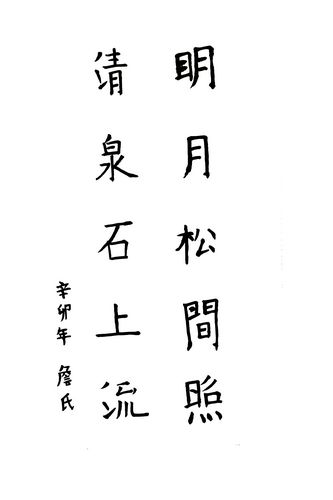 明月松間照
清泉石上流
辛卯年 詹氏